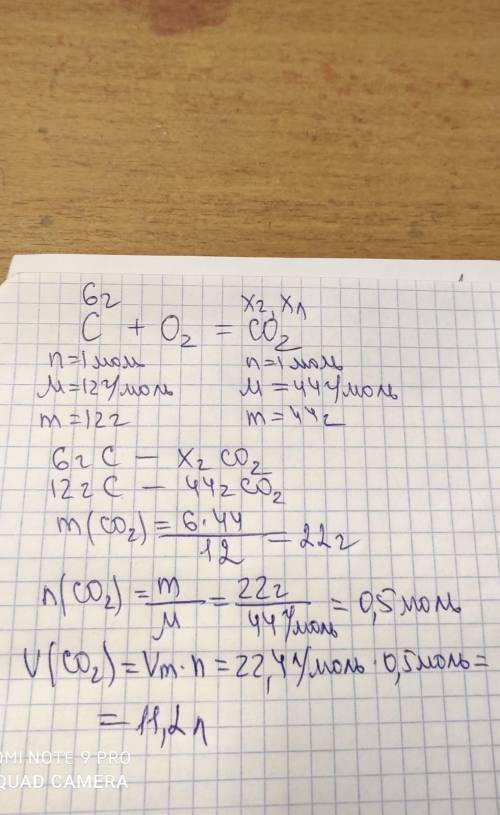 6г хг, хл
C + O₂ = CO₂
n=1моль n=1моль
M=12г/моль M=44г/моль
m=12г m=44г
6г C — хг CO₂
12г C — 44г CO₂
m(CO₂) = 6·44/12 = 22г
n(CO₂) = m/M = 22г/44г/моль = 0,5моль
V(CO₂) = Vm·n = 22,4л/моль·0,5моль=
= 11,2л
OMI NOTE 9 PRO
QUAD CAMERA